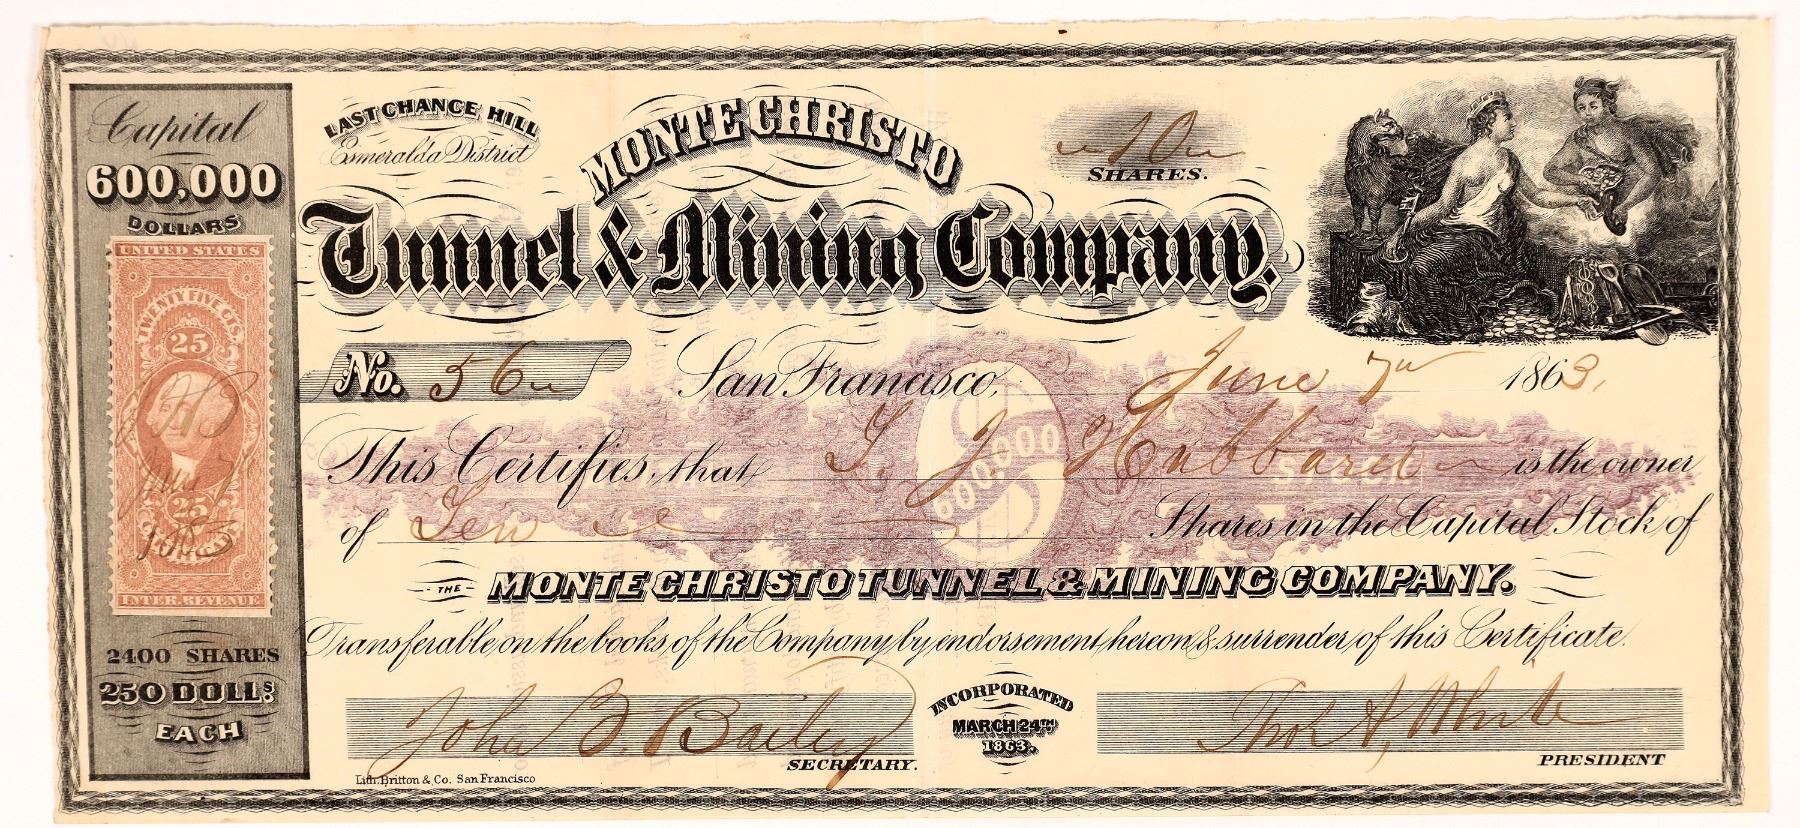 Capital
600,000
DOLLARS
UNITED STATES
TWENTY FIVE CTS.
25
25
INTER. REVENUE
2400 SHARES
250 DOLLS.
EACH
LAST CHANCE HILL
Esmeralda District
MONTE CHRISTO
Tunnel & Mining Company.
10
SHARES.
No. 56
San Francisco, June 7th 1863.
This Certifies, that T. J. Hubbard is the owner
of Ten Shares in the Capital Stock of
600,000
STOCK
THE MONTE CHRISTO TUNNEL & MINING COMPANY.
Transferable on the books of the Company by endorsement hereon & surrender of this Certificate.
John B. Bailey
SECRETARY.
INCORPORATED
MARCH 24TH
1863.
Thos A, White
PRESIDENT
Lith. Britton & Co. San Francisco